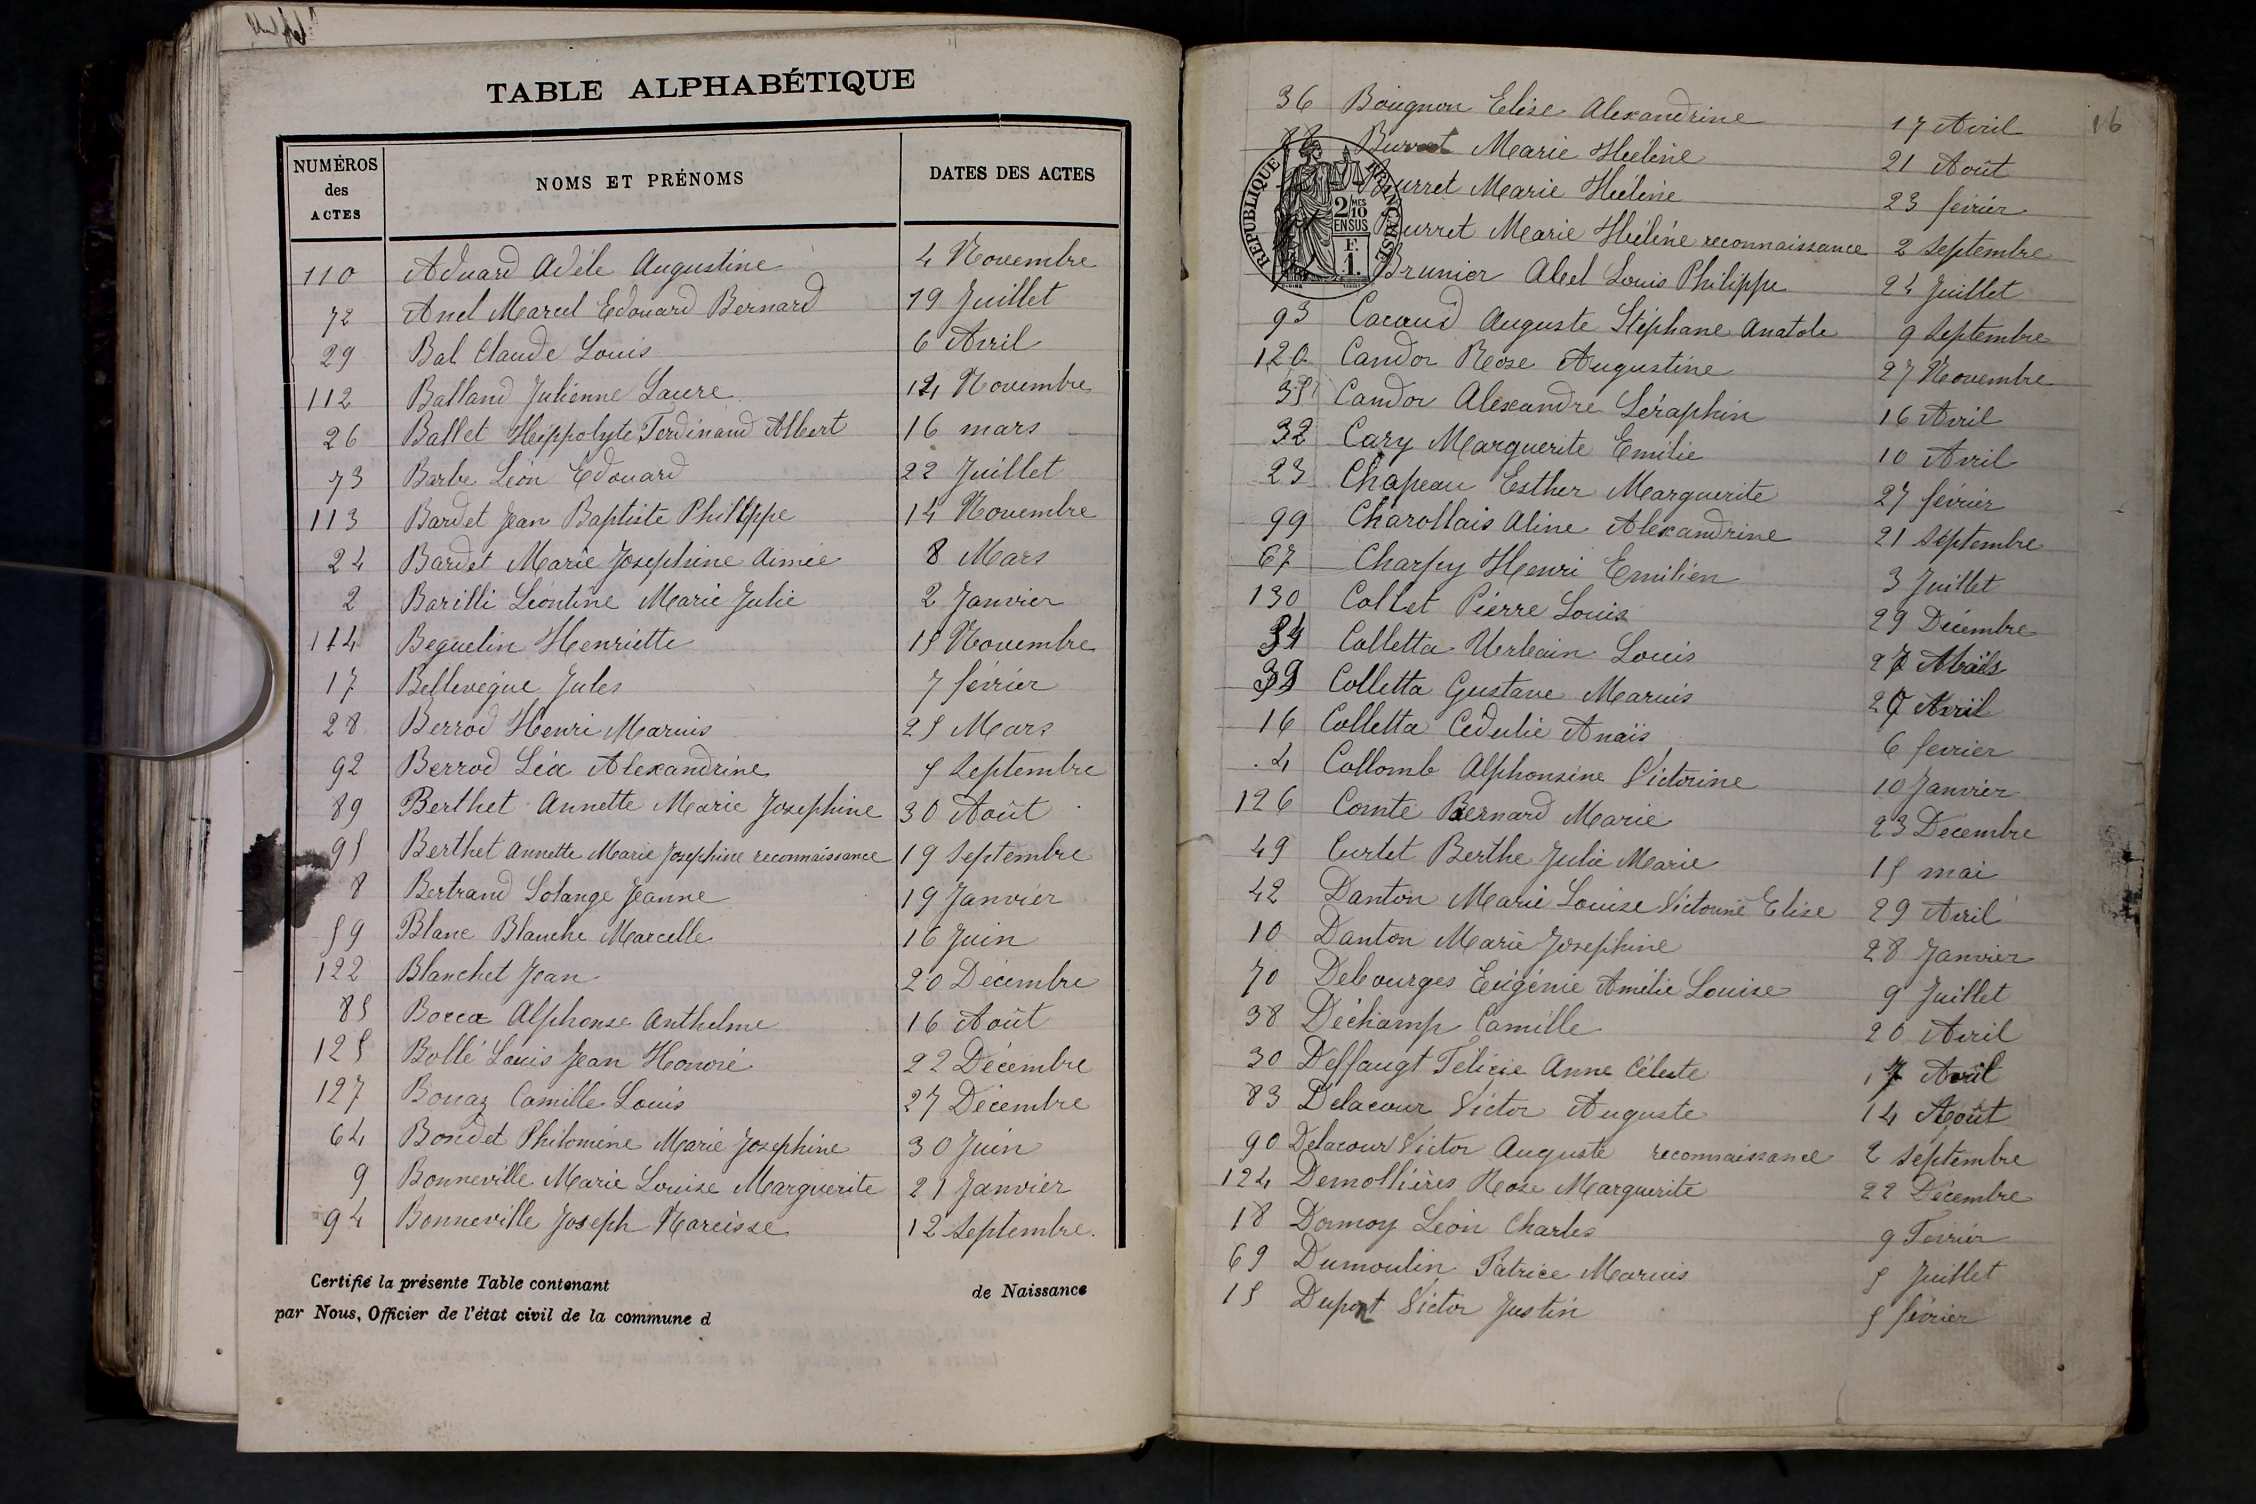 TABLE ALPHABÉTIQUE
NUMÉROS des ACTES | NOMS ET PRÉNOMS | DATES DES ACTES
110 Aduard Adèle Augustine 4 Novembre
72 Anel Marcel Edouard Bernard 19 Juillet
29 Bal Claude Louis 6 Avril
112 Balland Julienne Laure 14 Novembre
26 Ballet Hippolyte Ferdinand Albert 16 mars
73 Barbe Léon Edouard 22 Juillet
113 Bardet Jean Baptiste Philippe 14 Novembre
24 Bardet Marie Josephine Aimée 8 Mars
2 Barilli Léontine Marie Julie 2 Janvier
114 Beguelin Henriette 15 Novembre
17 Bellevegue Jules 7 février
28 Berrod Henri Marius 25 Mars
92 Berrod Léa Alexandrine 5 Septembre
89 Berthet Annette Marie Josephine 30 Août
95 Berthet Annette Marie Josephine reconnaissance 19 Septembre
8 Bertrand Solange Jeanne 19 Janvier
59 Blanc Blanche Marcelle 16 Juin
122 Blanchet Jean 20 Décembre
85 Bocca Alphonse Anthelme 16 Août
125 Bollé Louis Jean Honoré 22 Décembre
127 Bonaz Camille Louis 27 Décembre
64 Bondet Philomène Marie Josephine 30 Juin
9 Bonneville Marie Louise Marguerite 21 Janvier
94 Bonneville Joseph Narcisse 12 Septembre.
Certifié la présente Table contenant de Naissance
par Nous, Officier de l'état civil de la commune d
16
36 Bougnon Elise Alexandrine 17 Avril
Burret Marie Hélène 21 Août
Burret Marie Hélène 23 février
Burret Marie Hélène reconnaissance 2 Septembre
Brunier Abel Louis Philippe 24 Juillet
RÉPUBLIQUE FRANÇAISE
2/10 MES EN SUS
F. 1.
93 Cacaud Auguste Stéphane Anatole 9 Septembre
120 Candor Rose Augustine 27 Novembre
35 Candor Alexandre Séraphin 16 Avril
32 Cary Marguerite Emilie 10 Avril
23 Chapeau Esther Marguerite 27 février
99 Charollais Aline Alexandrine 21 Septembre
67 Charpy Henri Emilien 3 Juillet
130 Collet Pierre Louis 29 Décembre
Colletta Urbain Louis
39 Colletta Gustave Marius Avril
16 Colletta Cédulie Anaïs 6 février
4 Collomb Alphonsine Victorine 10 Janvier
126 Comte Bernard Marie 23 Décembre
49 Curtet Berthe Julie Marie 15 mai
42 Danton Marie Louise Victorine Elise 29 Avril
10 Danton Marie Josephine 28 Janvier
70 Debourges Eugénie Amélie Louise 9 Juillet
38 Déchamp Camille 20 Avril
30 Deffaugt Félicie Anne Céleste 7 Avril
83 Delacour Victor Auguste 14 Août
90 Delacour Victor Auguste reconnaissance 2 Septembre
124 Demollières Rose Marguerite 22 Décembre
18 Dormoy Léon Charles 9 Février
69 Dumoulin Patrice Marius 5 Juillet
15 Dupont Victor Justin 5 février